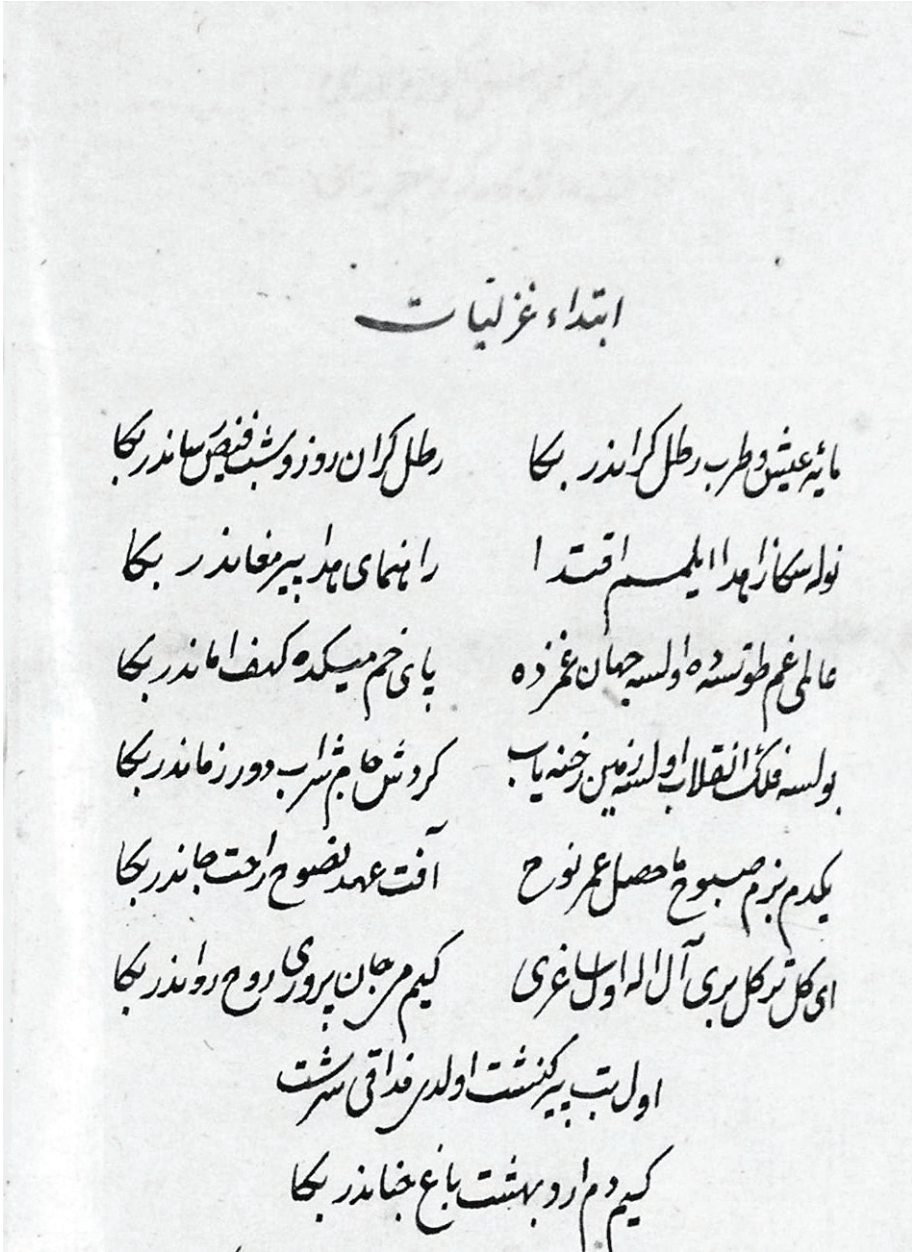 ابتداء غزلیات
مایۀ عیش و طرب رطل كراندر بكا رطل كران روز و شب فیض رساندر بكا
نوله سكا زاهدا ایلمسم اقتدا راهنمای هدا پیر مغاندر بكا
عالمی غم طوتسه ده اولسه جهان غمزده پای خم میكده كهف اماندر بكا
بولسه فلك انقلاب اولسه زمین رخنه یاب كردش جام شراب دور زماندر بكا
یكدم بزم صبوح ماحصل عمر نوح آفت عهد نصوح راحت جاندر بكا
ای كل تر كل بری آل اله اول ساغری كیم مر جان پروری روح رواندر بكا
اول بت پیر كنشت اولدی سرشت
كیم دم اردوبهشت باغ جناندر بكا